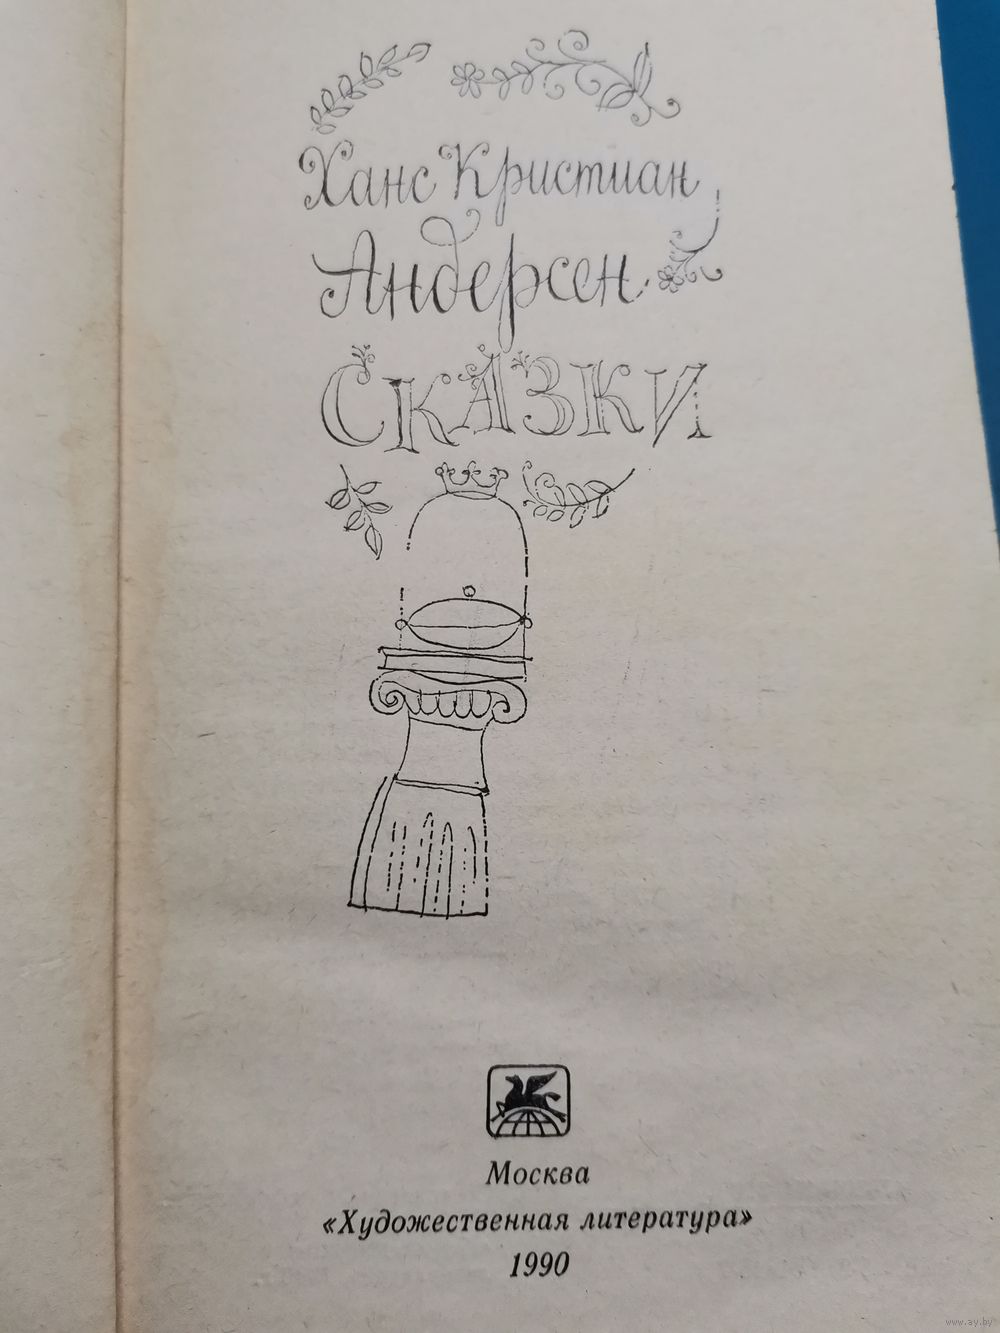 Ханс Кристиан
Андерсен
СКАЗКИ
Москва
«Художественная литература»
1990
www.ay.by